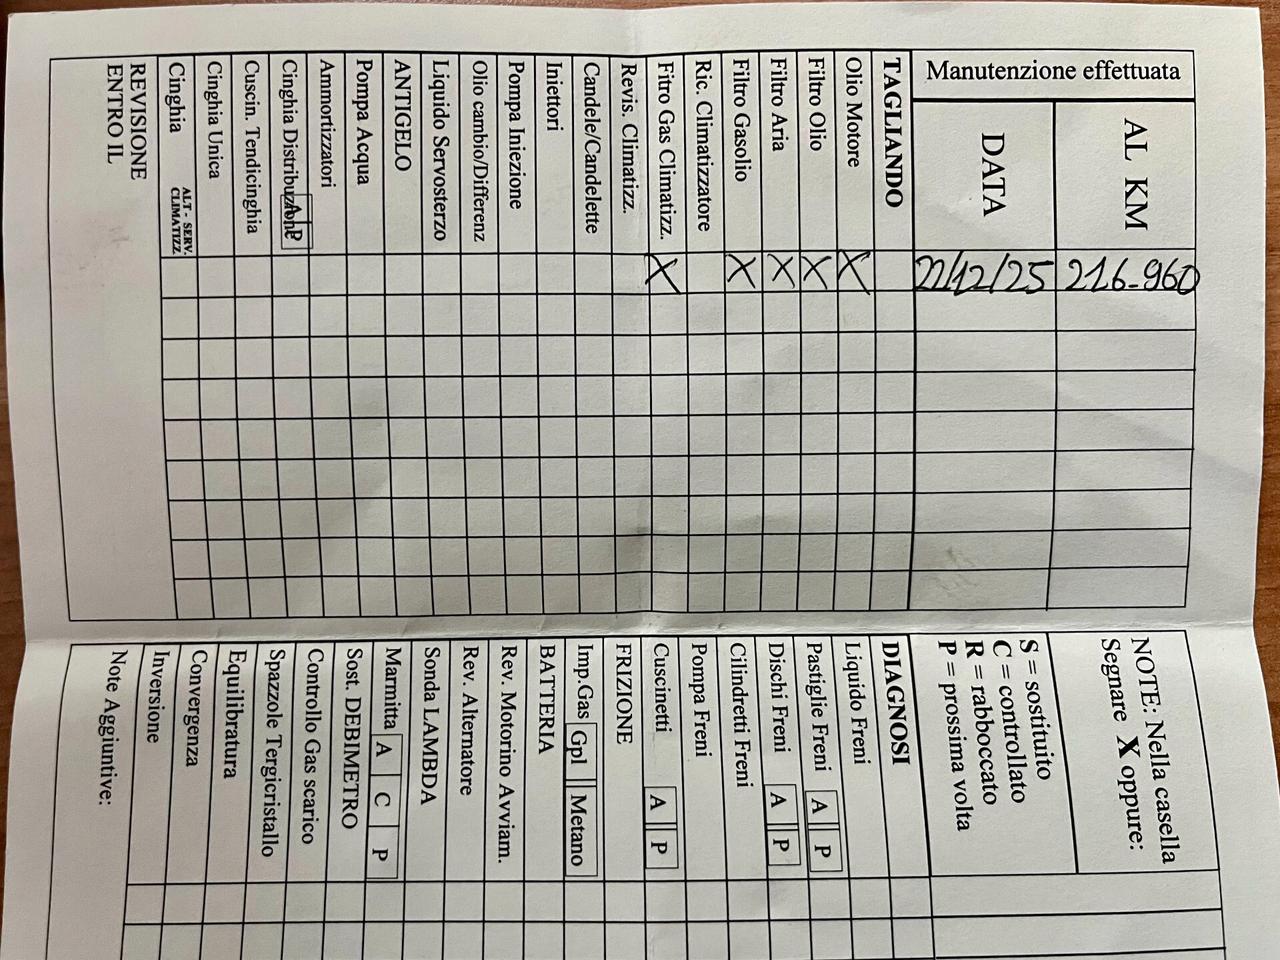 Manutenzione effettuata
AL KM 216-960
DATA 22/12/25
TAGLIANDO
Olio Motore X
Filtro Olio X
Filtro Aria X
Filtro Gasolio X
Ric. Climatizzatore
Fitro Gas Climatizz. X
Revis. Climatizz.
Candele/Candelette
Iniettori
Pompa Iniezione
Olio cambio/Differenz
Liquido Servosterzo
ANTIGELO
Pompa Acqua
Ammortizzatori
Cinghia Distribuzione A P
Cuscin. Tendicinghia
Cinghia Unica
Cinghia ALT - SERV. CLIMATIZZ
REVISIONE
ENTRO IL
NOTE: Nella casella
Segnare X oppure:
S = sostituito
C = controllato
R = rabboccato
P = prossima volta
DIAGNOSI
Liquido Freni
Pastiglie Freni A P
Dischi Freni A P
Cilindretti Freni
Pompa Freni
Cuscinetti A P
FRIZIONE
Imp.Gas Gpl Metano
BATTERIA
Rev. Motorino Avviam.
Rev. Alternatore
Sonda LAMBDA
Marmitta A C P
Sost. DEBIMETRO
Controllo Gas scarico
Spazzole Tergicristallo
Equilibratura
Convergenza
Inversione
Note Aggiuntive: